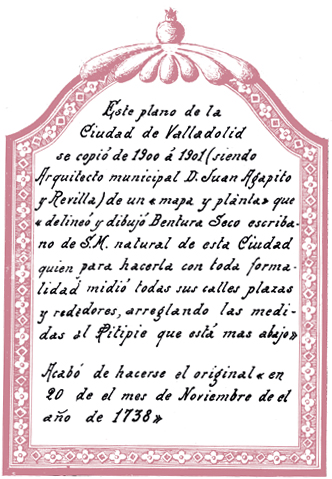 Este plano de la
Ciudad de Valladolid
se copió de 1900 á 1901 (siendo
Arquitecto municipal D. Juan Agapito
y Revilla) de un « mapa y planta » que
« delineó y dibujó Bentura Seco escriba-
no de S.M. natural de esta Ciudad
quien para hacerla con toda forma-
lidad midió todas sus calles plazas
y rededores, arreglando las medi-
das al Pitipie que está mas abajo»
Acabó de hacerse el original « en
20 de el mes de Noviembre de el
año de 1738»